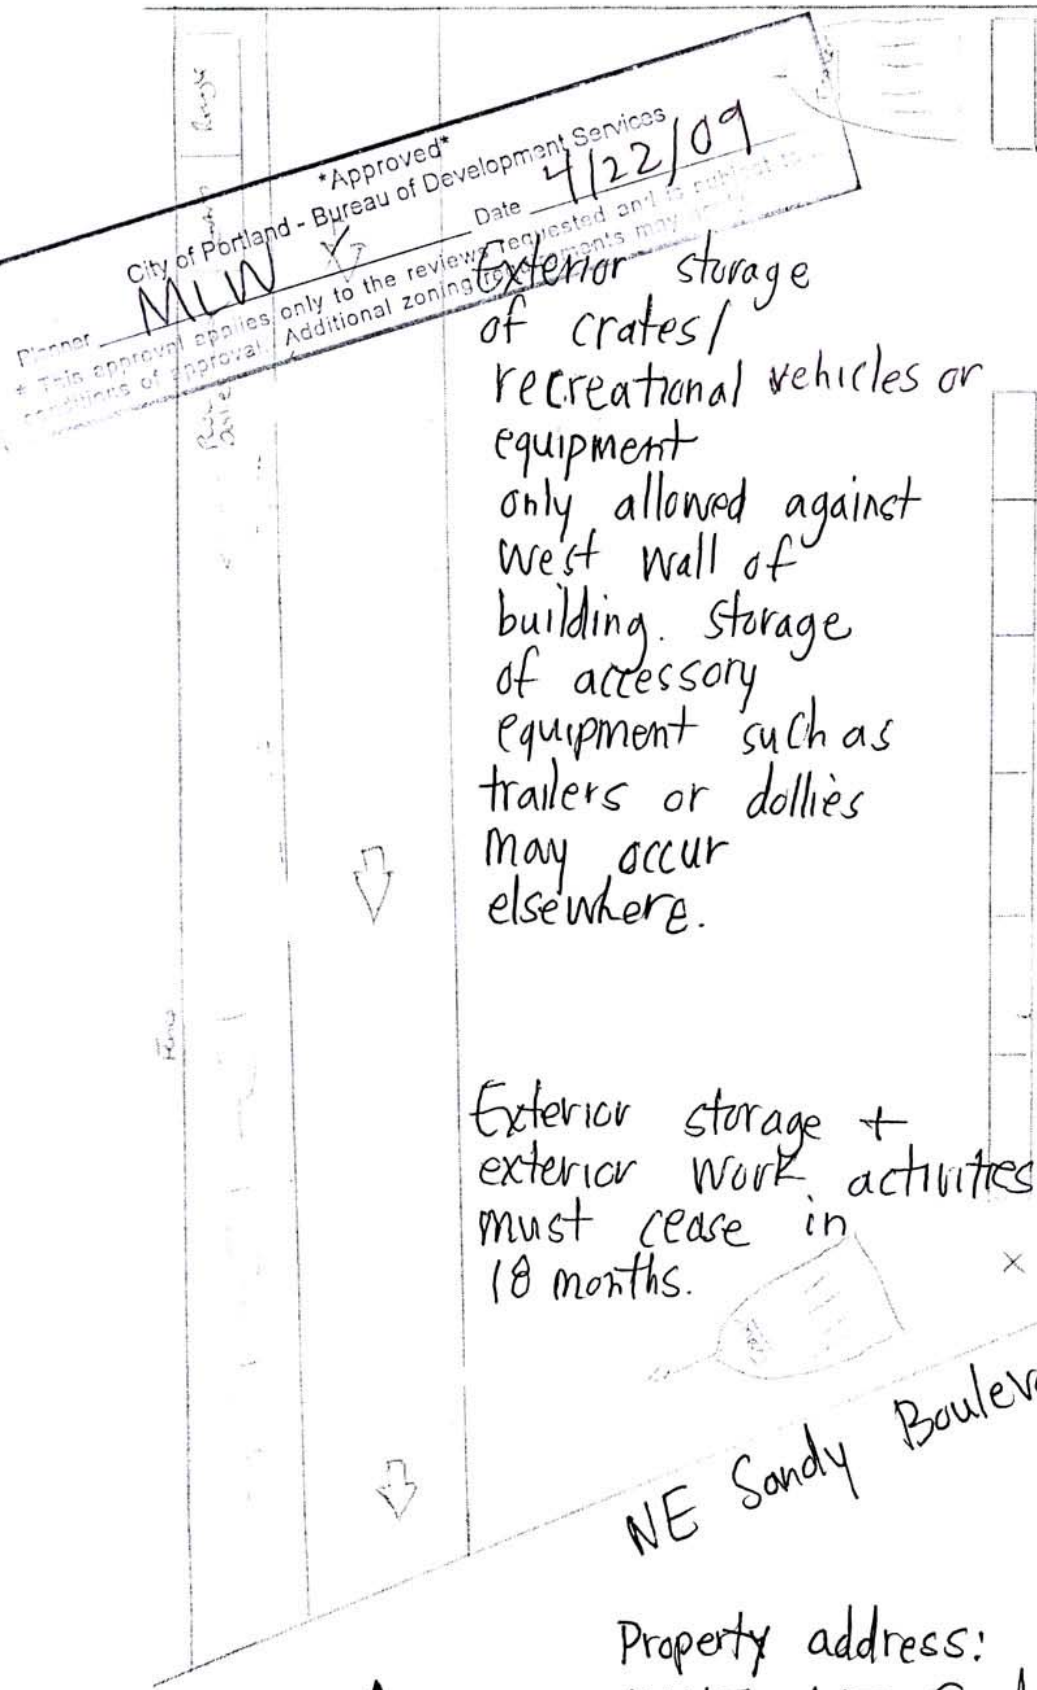 *Approved*
City of Portland - Bureau of Development Services
Planner MLW Date 4/22/09
* This approval applies only to the reviews requested and is subject to
conditions of approval. Additional zoning requirements may
Exterior storage
of crates/
recreational vehicles or
equipment
only allowed against
west wall of
building. Storage
of accessory
equipment such as
trailers or dollies
may occur
elsewhere.
Exterior storage +
exterior work activities
must cease in
18 months.
NE Sandy Boulev
Property address: